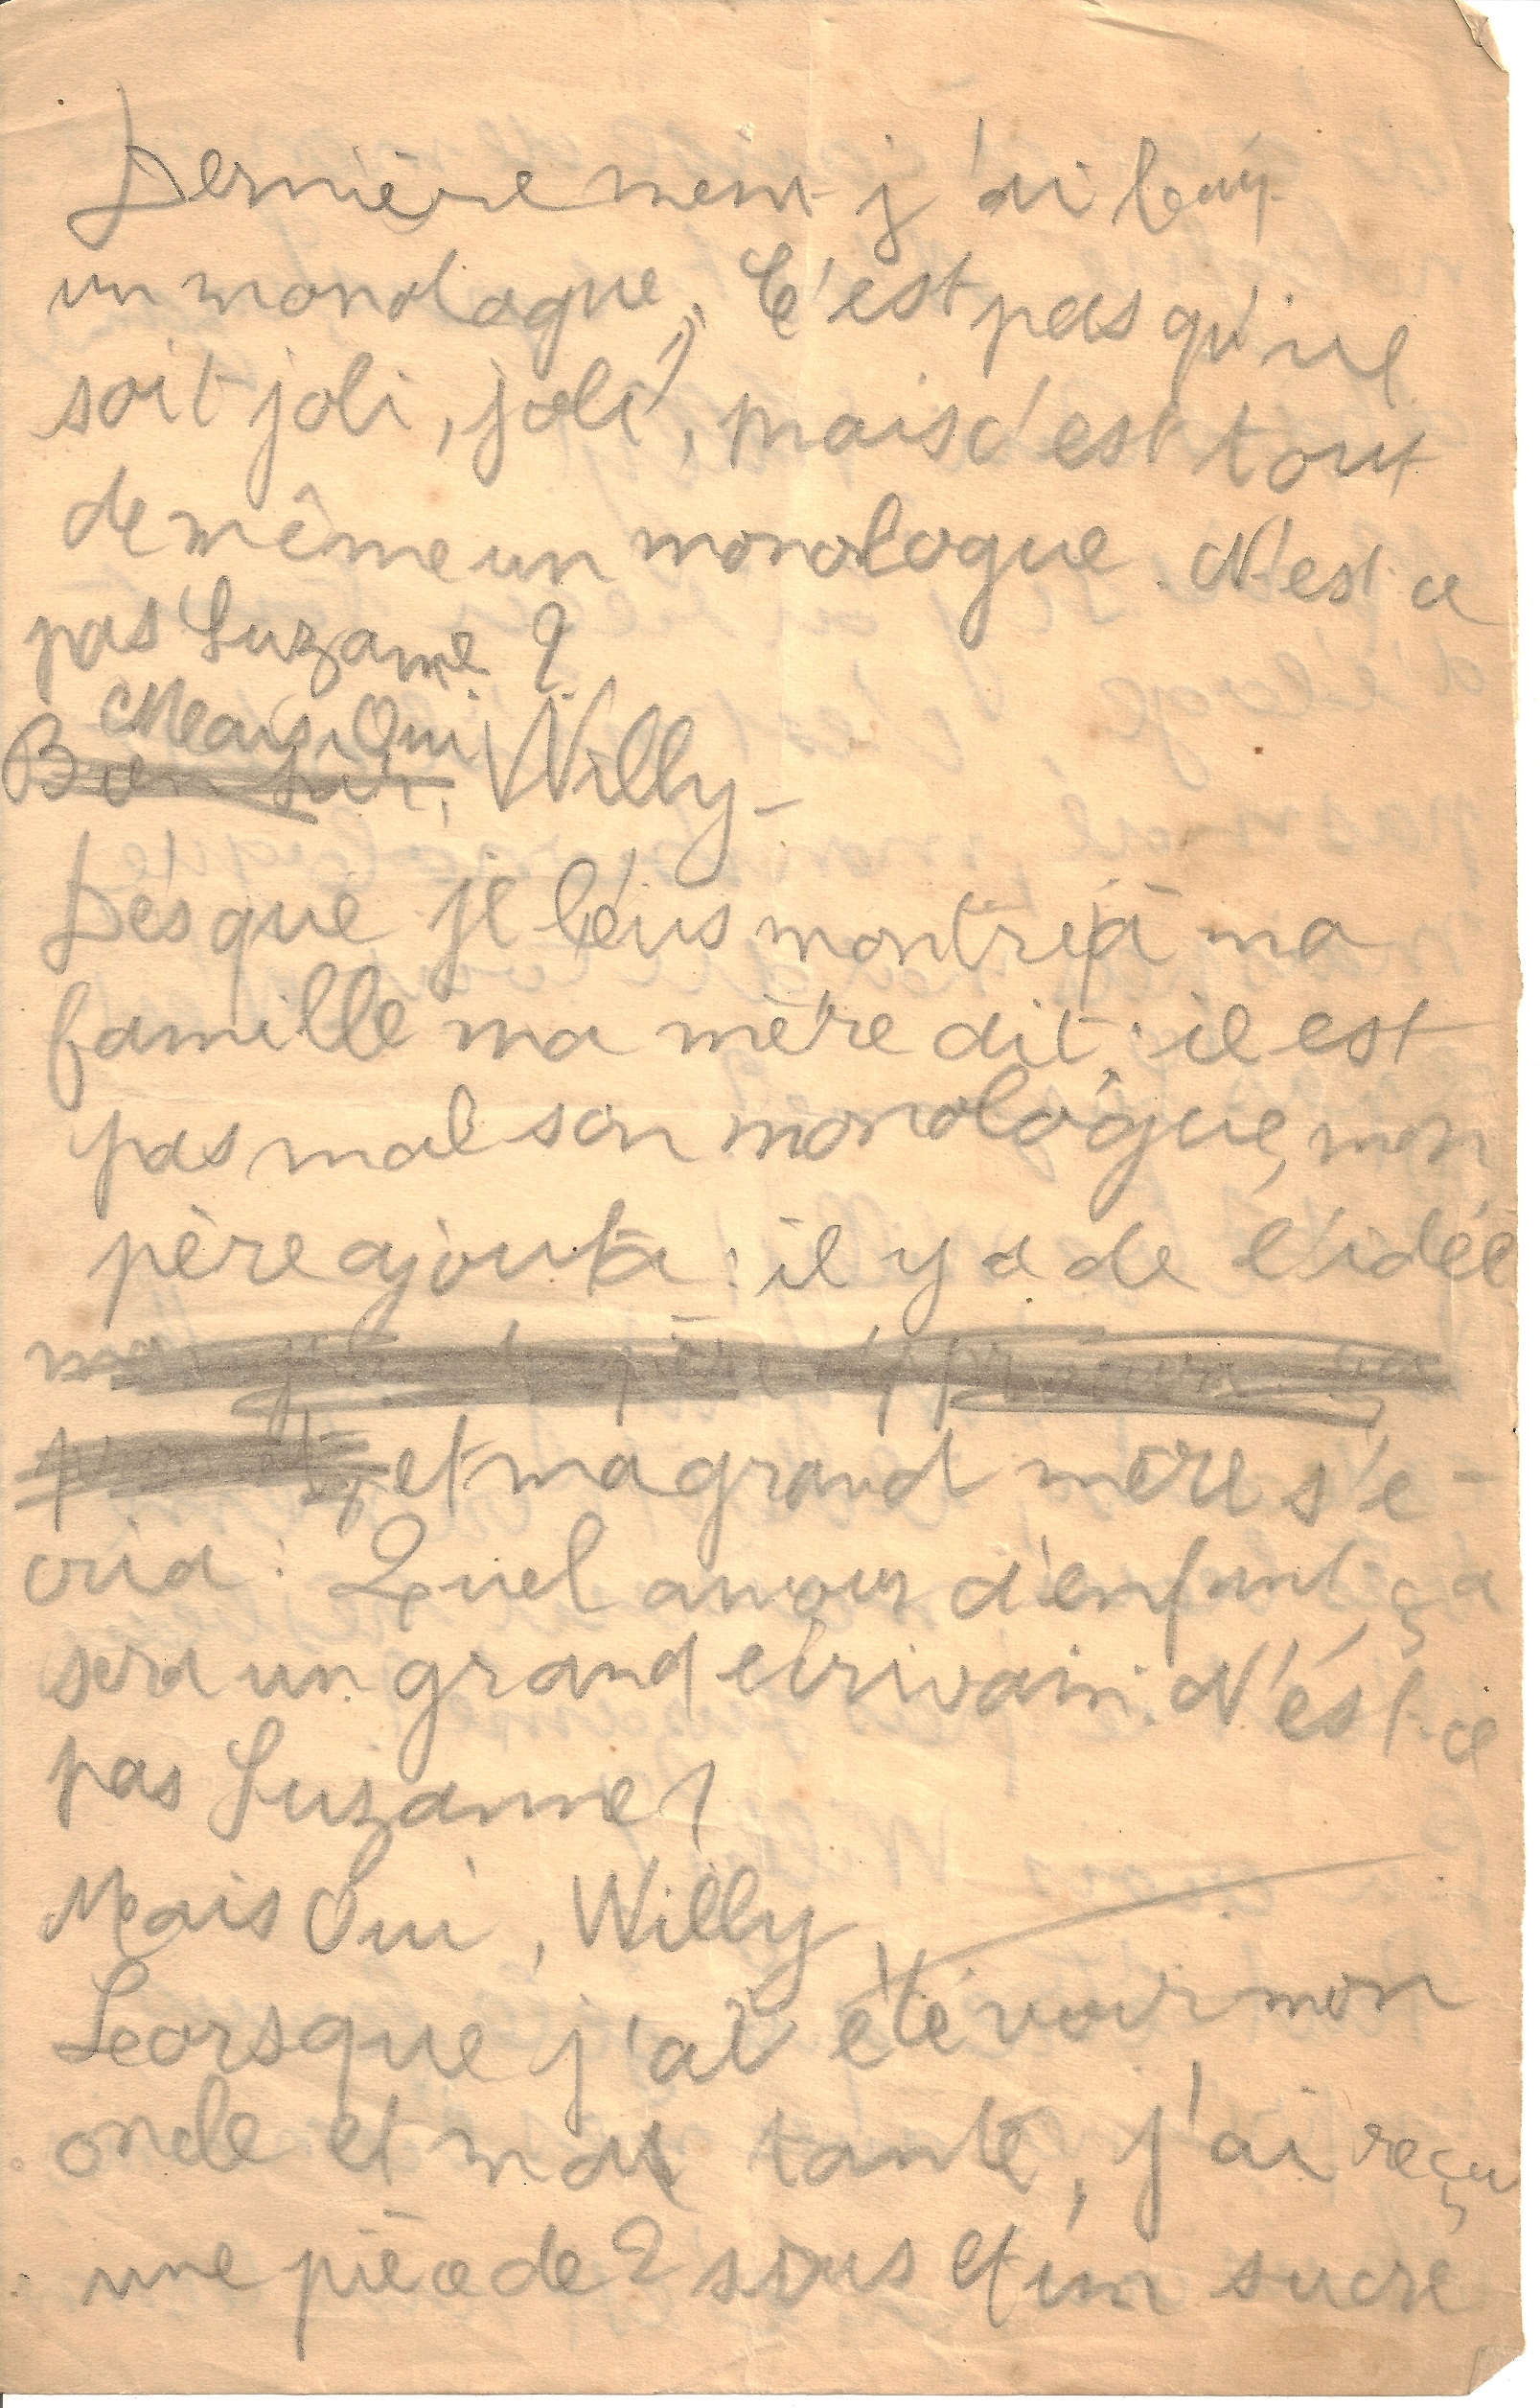 Dernièrement j'ai
un monologue, C'est pas qu'il
soit joli, joli, mais c'est tout
de même un monologue. N'est-ce
pas Suzanne ?
Mais Oui
Bien sûr, Willy -
Dès que je l'eus montré à ma
famille ma mère dit : il est
pas mal son monologue, mon
père ajouta : il y a de l'idée
et ma grand mère s'é-
cria : Quel amour d'enfant, ça
sera un grand écrivain. N'est-ce
pas Suzanne ?
Mais Oui, Willy,
Leorsque j'ai été voir mon
oncle et ma tante, j'ai reçu
une pièce de 2 sous et un sucre